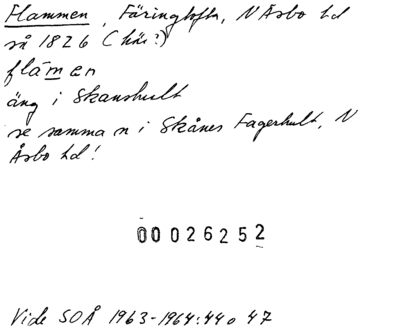 Flammen, Färingtofta, N Åsbo hd
så 1826 (här?)
flämen
äng i Skanshult
se samma n i Skånes Fagerhult, N
Åsbo hd!
00026252
Vide SOÅ 1963-1964:44 o 47